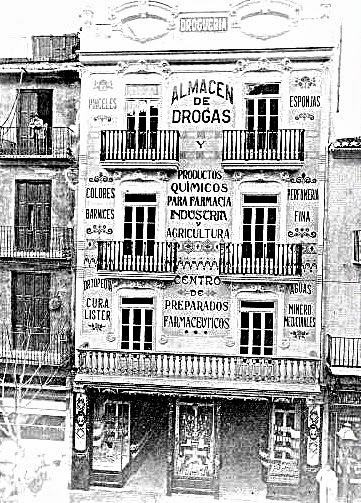 DROGUERIA
ALMACEN
DE
DROGAS
Y
PRODUCTOS
QUÍMICOS
PARA FARMACIA
INDUSTRIA
Y
AGRICULTURA
CENTRO
DE
PREPARADOS
FARMACEUTICOS
PINCELES
COLORES
BARNICES
ORTOPEDIA
CURA
LISTER
ESPONJAS
PERFUMERIA
FINA
AGUAS
MINERO
MEDICINALES